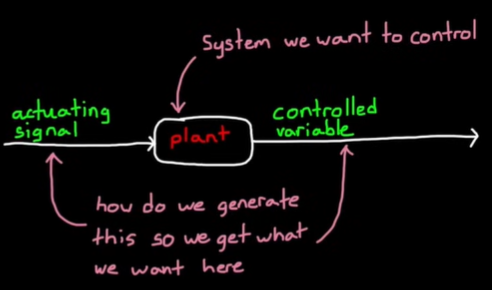 System we want to control
actuating
signal
plant
controlled
variable
how do we generate
this so we get what
we want here